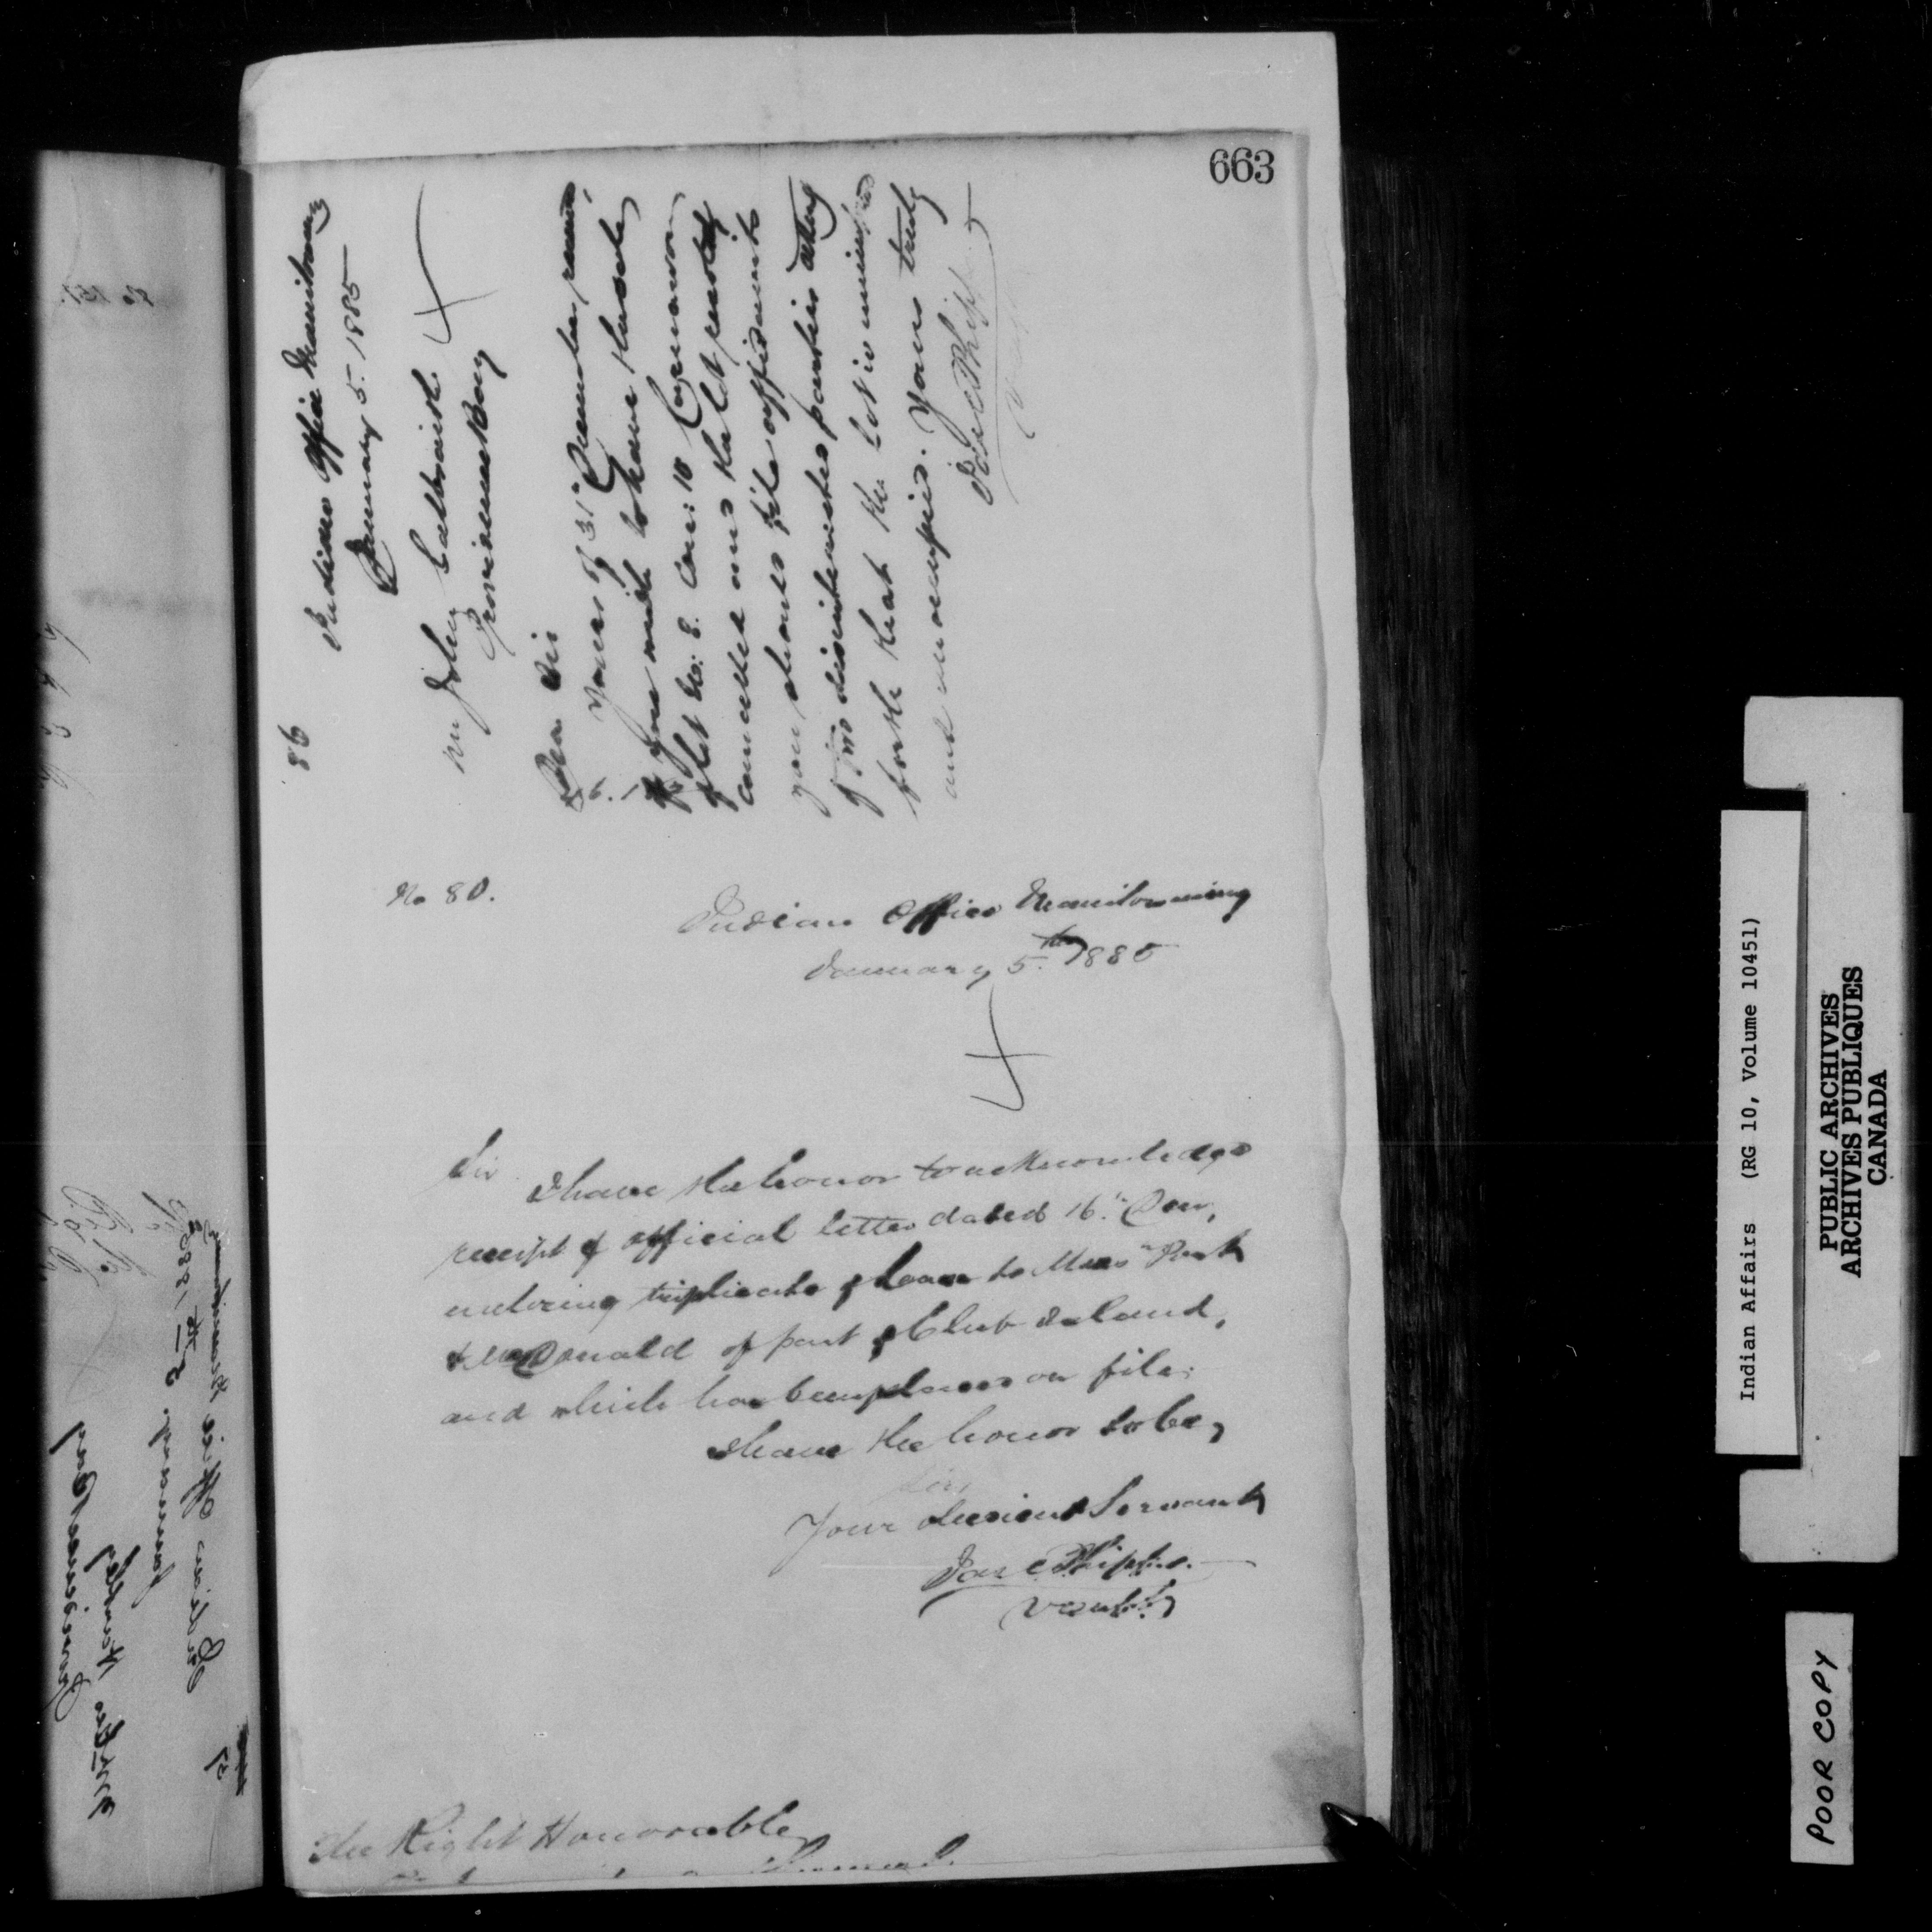 663
86
Indian Office Manitowaning
January 5. 1885
Mr John Galbraith
Providence Bay
Dear Sir
Yours of 31st December received
$6.
If you wish to have the sale
of lot No: 8. Con: 10 Carnarvon
cancelled and the lot resold
you should file affidavits
of two disinterested parties setting
forth that the lot is unimproved
and unoccupied. Yours truly
Jas C Phipps
No 80.
Indian Office Manitowaning
January 5th 1885
Sir
I have the honor to acknowledge
receipt of official letter dated 16th Decr,
enclosing triplicate of lease to Messrs Park
& McDonald of part of Club Island,
and which has been placed on file.
I have the honor to be,
Sir,
Your obedient Servant
Jas C Phipps.
V. Supt
The Right Honorable
Indian Office Manitowaning
January. 5th 1885
Providence Bay
Indian Affairs (RG 10, Volume 10451)
PUBLIC ARCHIVES
ARCHIVES PUBLIQUES
CANADA
POOR COPY